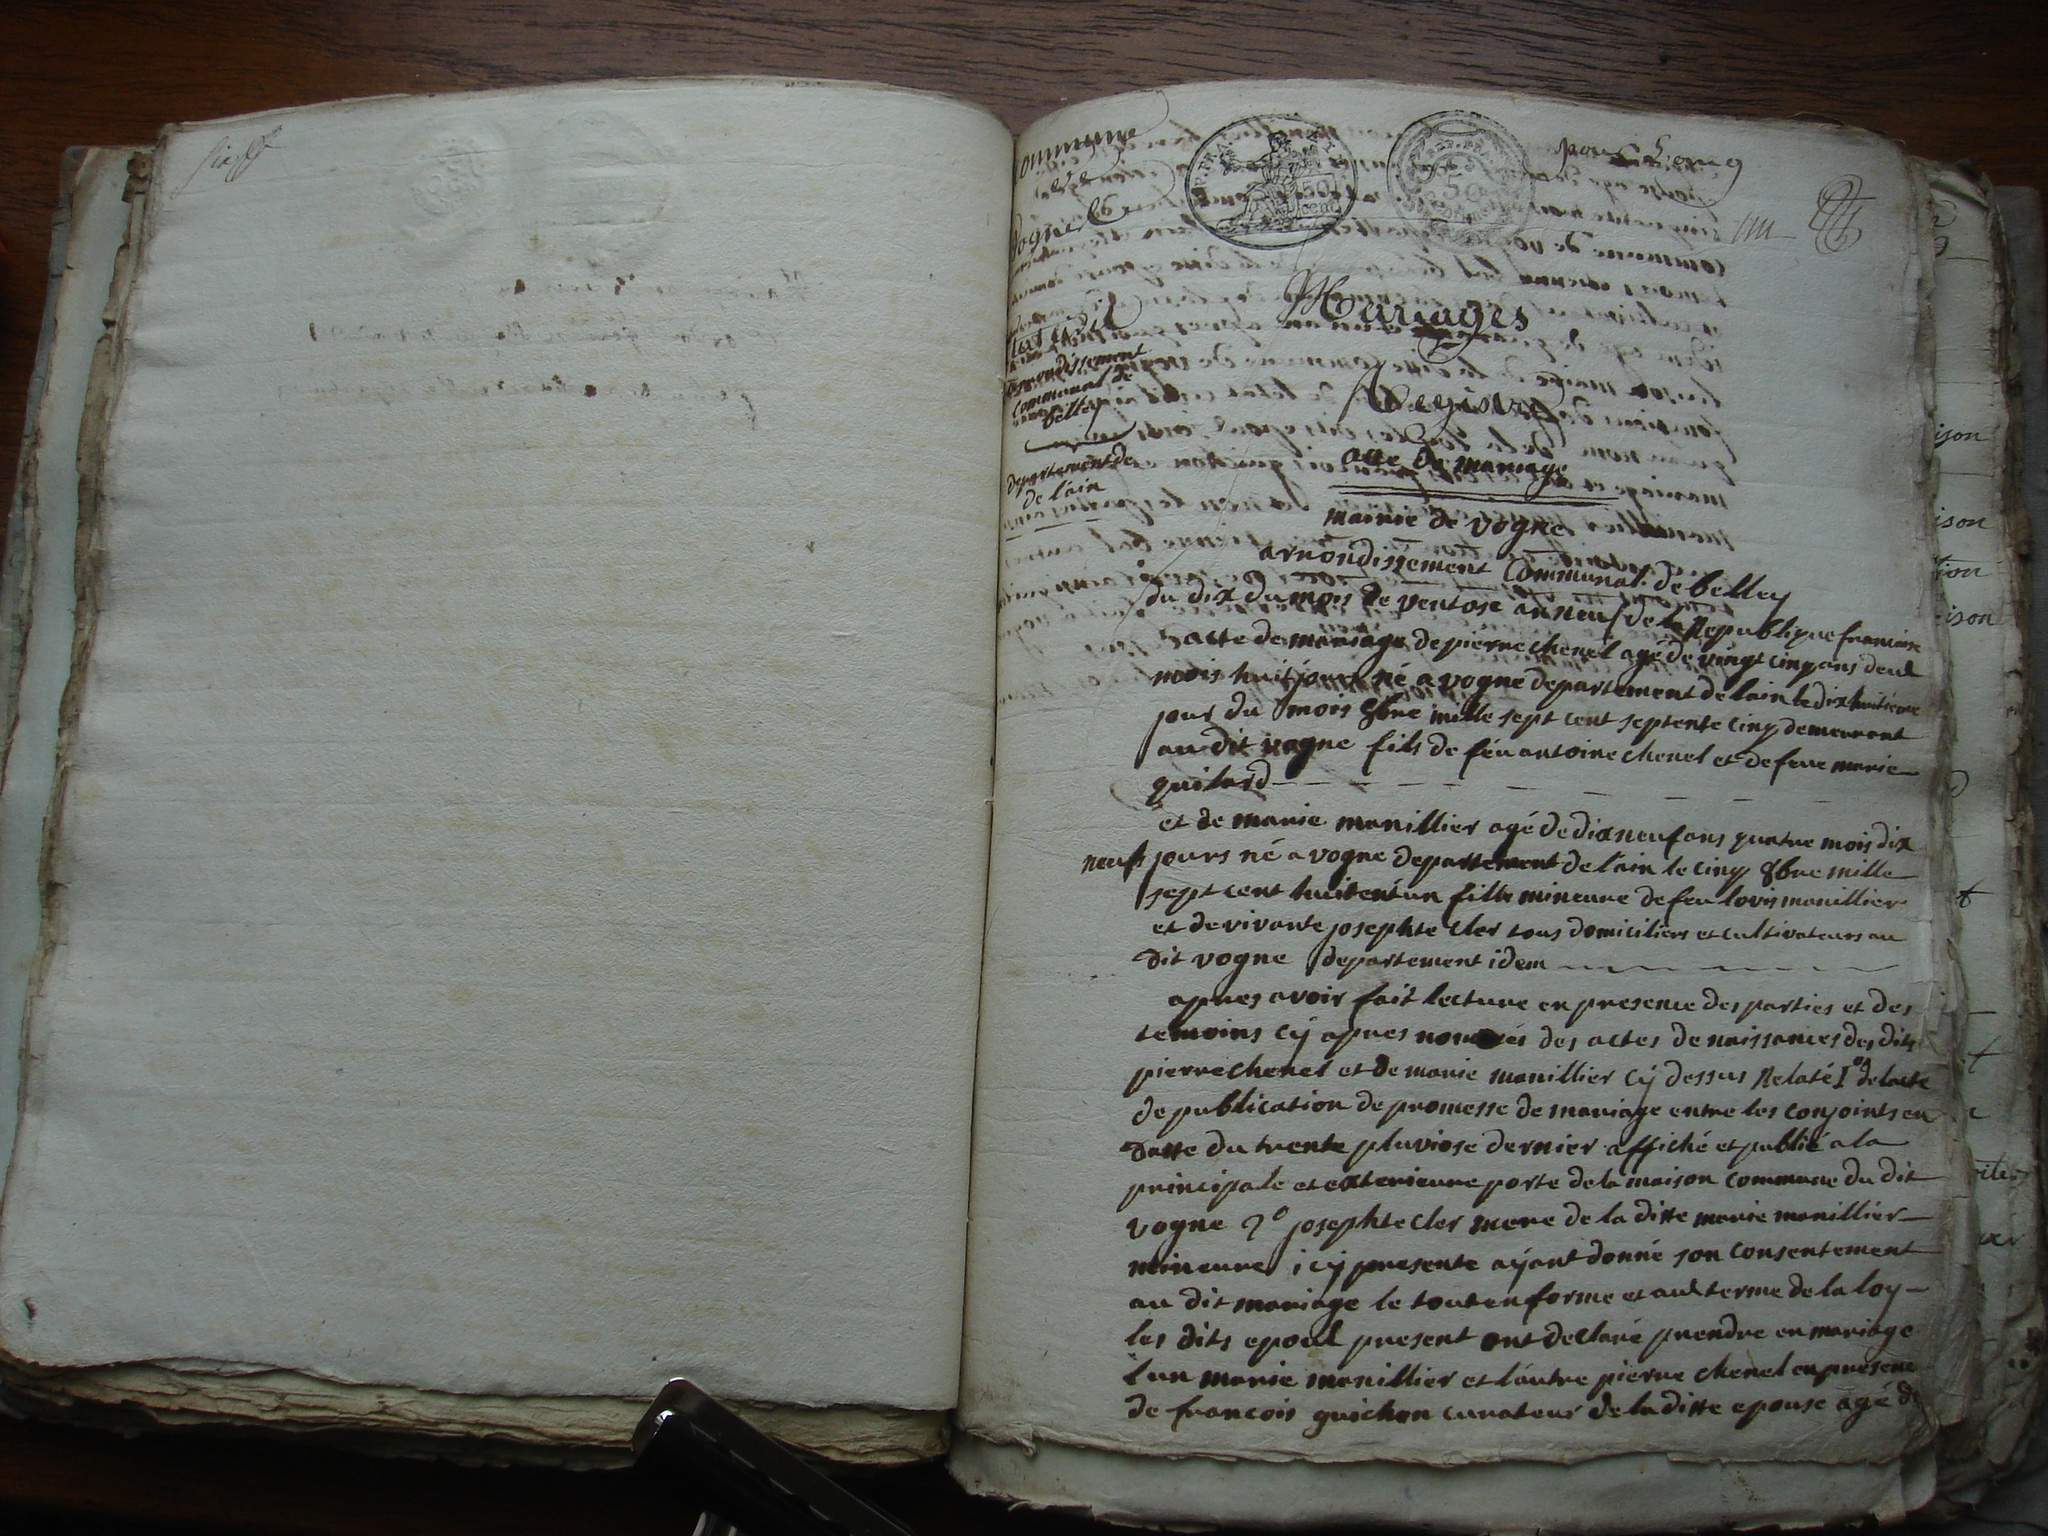 Commune
de
Vogne
Etat civil
arrondissement
communal de
belley
departement de
de l'ain
pour l'an 9
50
cent
5
Mariages
Registre
acte de mariage
mairie de vogne
arrondissement communal de belley
du dix du mois de ventose an neuf de la Republique francaise
acte de mariage de pierre chenel agé de vingt cinq ans deux
mois huit jours né a vogne departement de lain le dix huitieme
jour du mois 8bre mille sept cent septente cinq demeurant
au dit vogne fils de feu antoine chenel et de feue marie
guilard
et de marie manillier agé de dix neuf ans quatre mois dix
neufs jours né a vogne departement de l'ain le cinq 8bre mille
sept cent huitent un fille mineure de feu lovis manillier
et de vivante josephte cler tous domiciliers et cultivateurs au
dit vogne departement idem
apres avoir fait lecture en presence des parties et des
temoins cÿ apres nommés des actes de naissances des dits
pierre chenel et de marie manillier cÿ dessus Relaté 1° de lacte
de publication de promesse de mariage entre les conjoints en
datte du trente pluviose dernier affiché et publié a la
principale et exterieure porte de la maison commune du dit
vogne 2° josephte cler mere de la ditte marie manillier
mineure icÿ presente aÿant donné son consentement
au dit mariage le tout en forme et aux terme de la loy
les dits epoux present ont declaré prendre en mariage
l'un marie manillier et l'autre pierre chenel en presence
de francois guichon curateur de la ditte epouse agé de